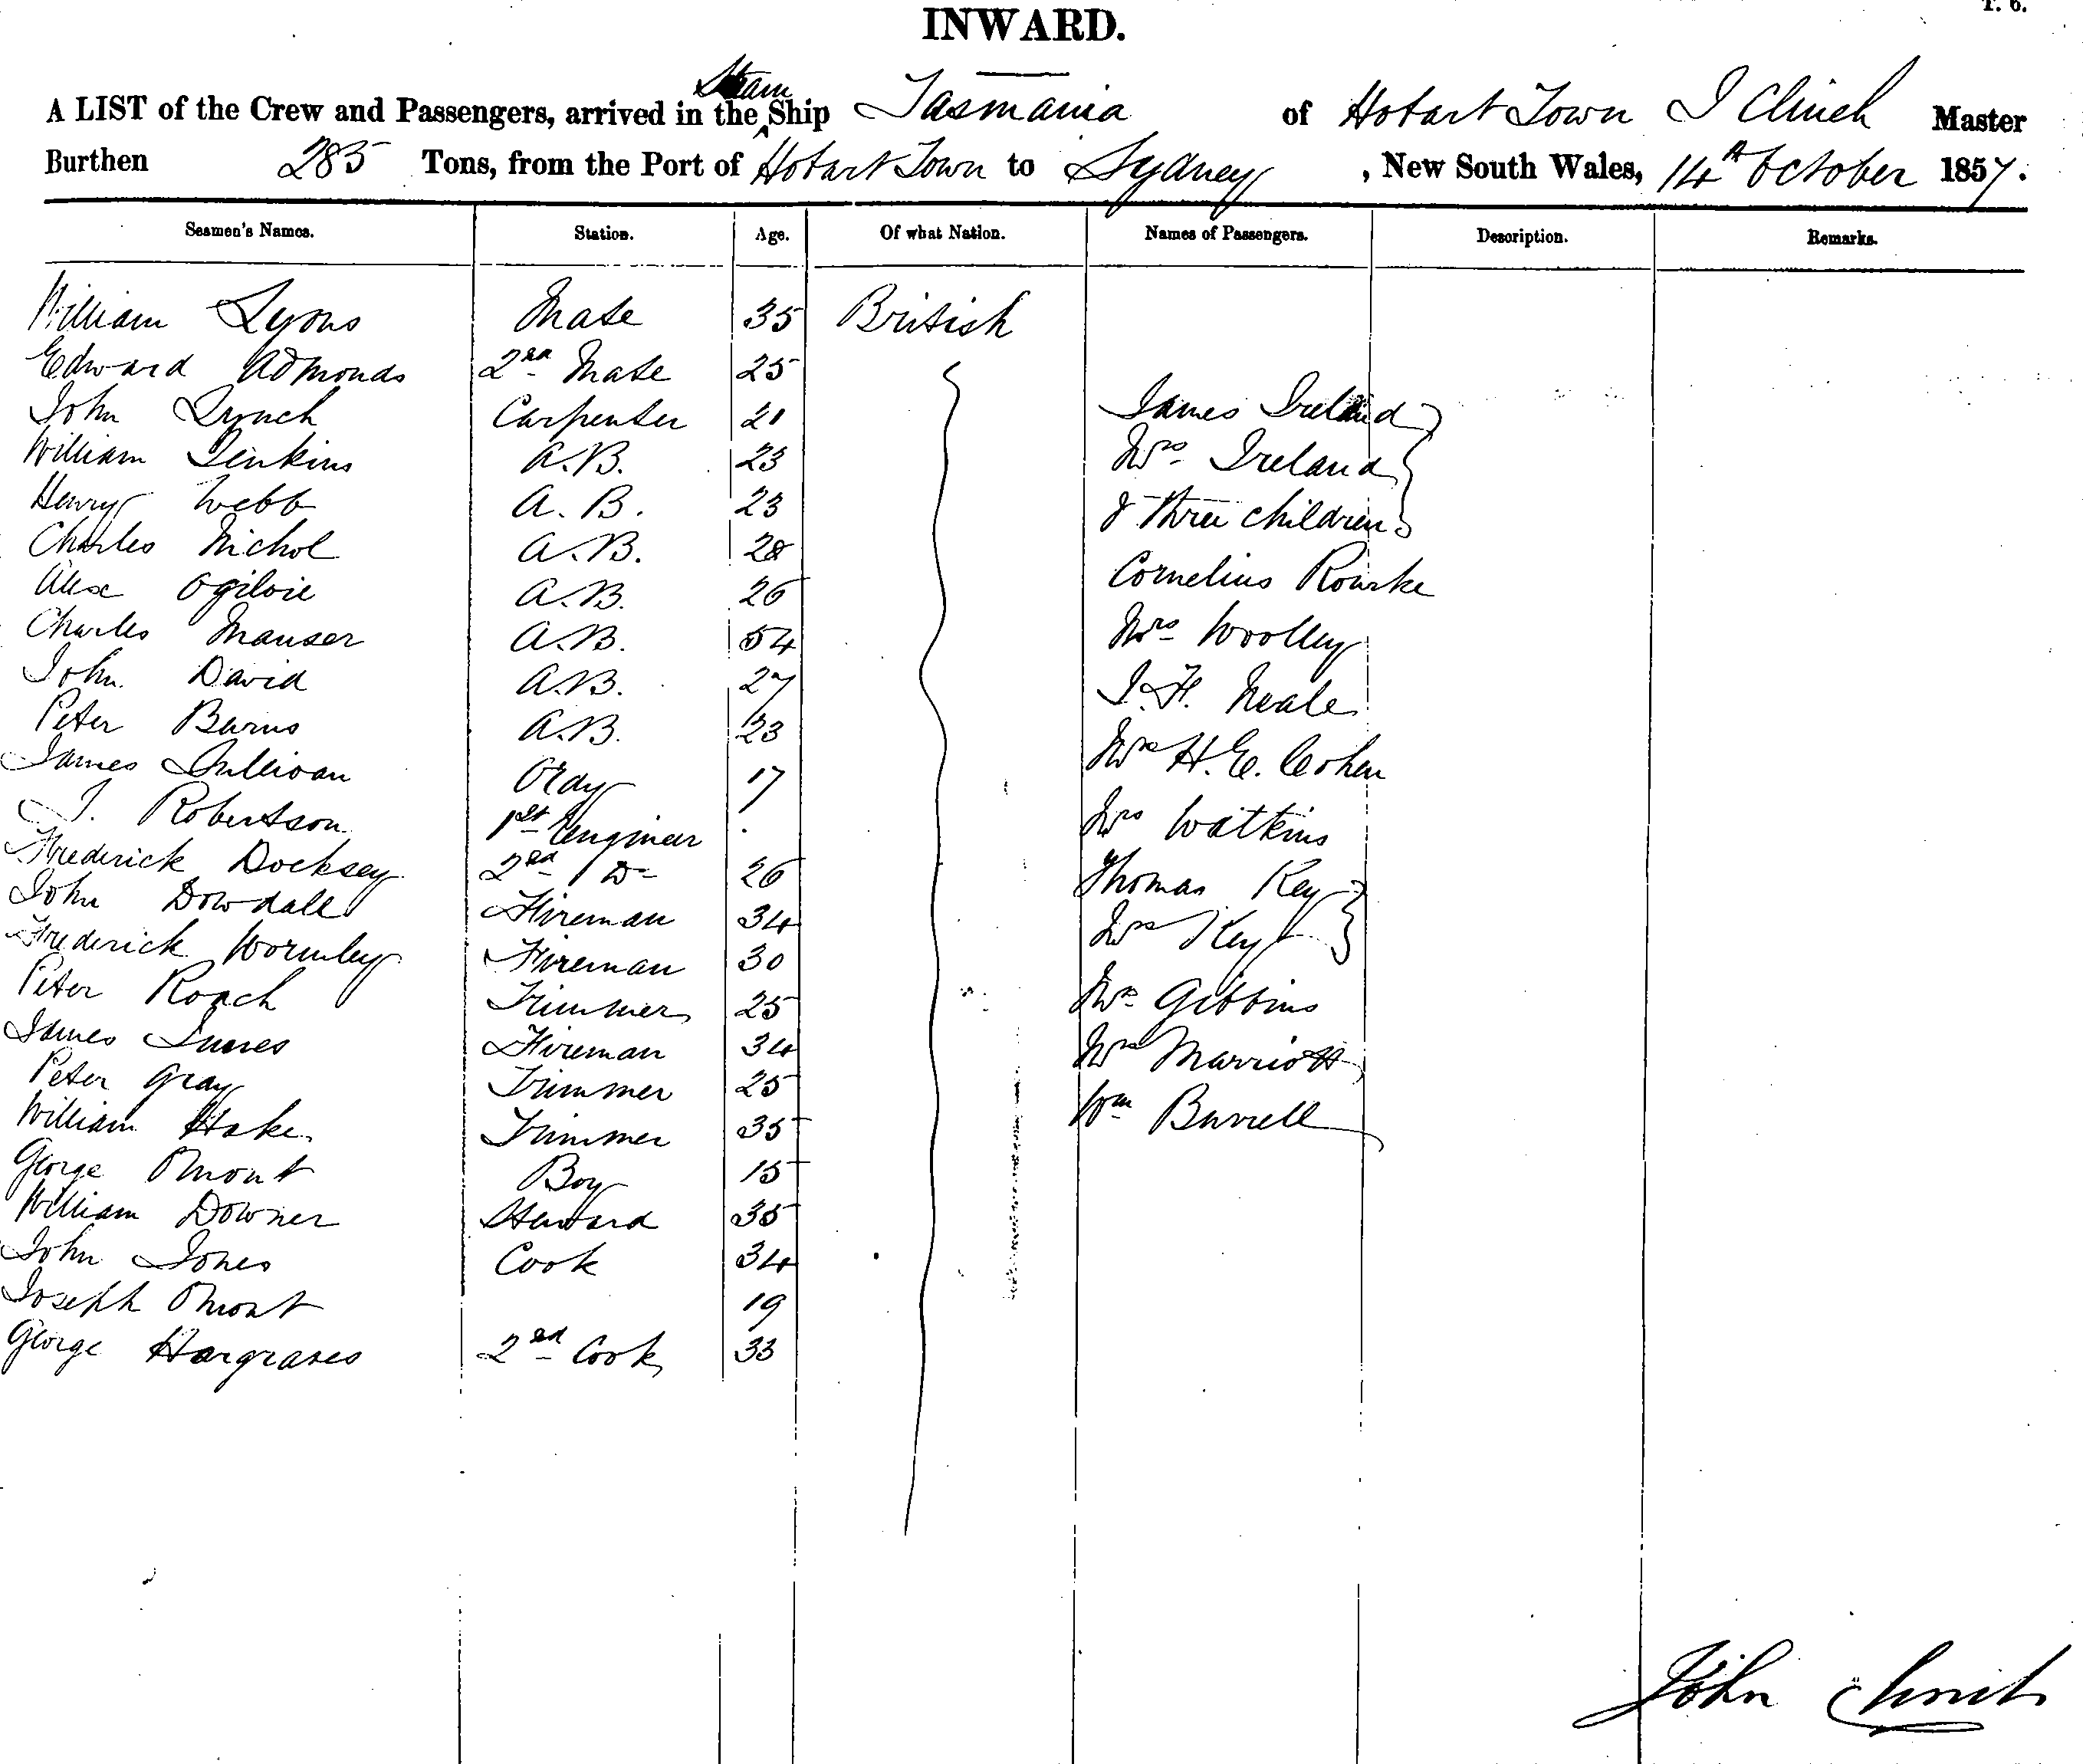 T. 6.
INWARD.
Steam
A LIST of the Crew and Passengers, arrived in the ^ Ship Tasmania of Hobart Town J Clinch Master
Burthen 285 Tons, from the Port of Hobart Town to Sydney, New South Wales, 14th October 1857.
Seamen's Names. Station. Age. Of what Nation. Names of Passengers. Description. Remarks.
William Lyons Mate 35 British
Edward Admonds 2nd Mate 25
John Lynch Carpenter 21 James Ireland
William Jenkins A.B. 23 Mrs Ireland
Henry Webb A. B. 23 & Three children
Charles Nichol A.B. 28
Alex Ogilvie A.B. 26 Cornelius Rourke
Charles Manser A.B. 54 Mrs Woolley
John David A.B. 27 J. H. Neale
Peter Burns A.B. 23 Mrs H. E. Cohen
James Sullivan Ordy 17
J. Robertson 1st Engineer Mrs Watkins
Frederick Docksey 2nd Do 26 Thomas Key
John Dowdall Fireman 34 Mrs Key
Frederick Wormley Fireman 30
Peter Roach Trimmer 25 Mrs Gibbins
James Innes Fireman 34 Mrs Marriott
Peter Gray Trimmer 25
William Hake Trimmer 35 Wm Burrell
George Omont Boy 15
William Downer Steward 35
John Jones Cook 34
Joseph Omont 19
George Hargraves 2nd Cook 33
John Clinch